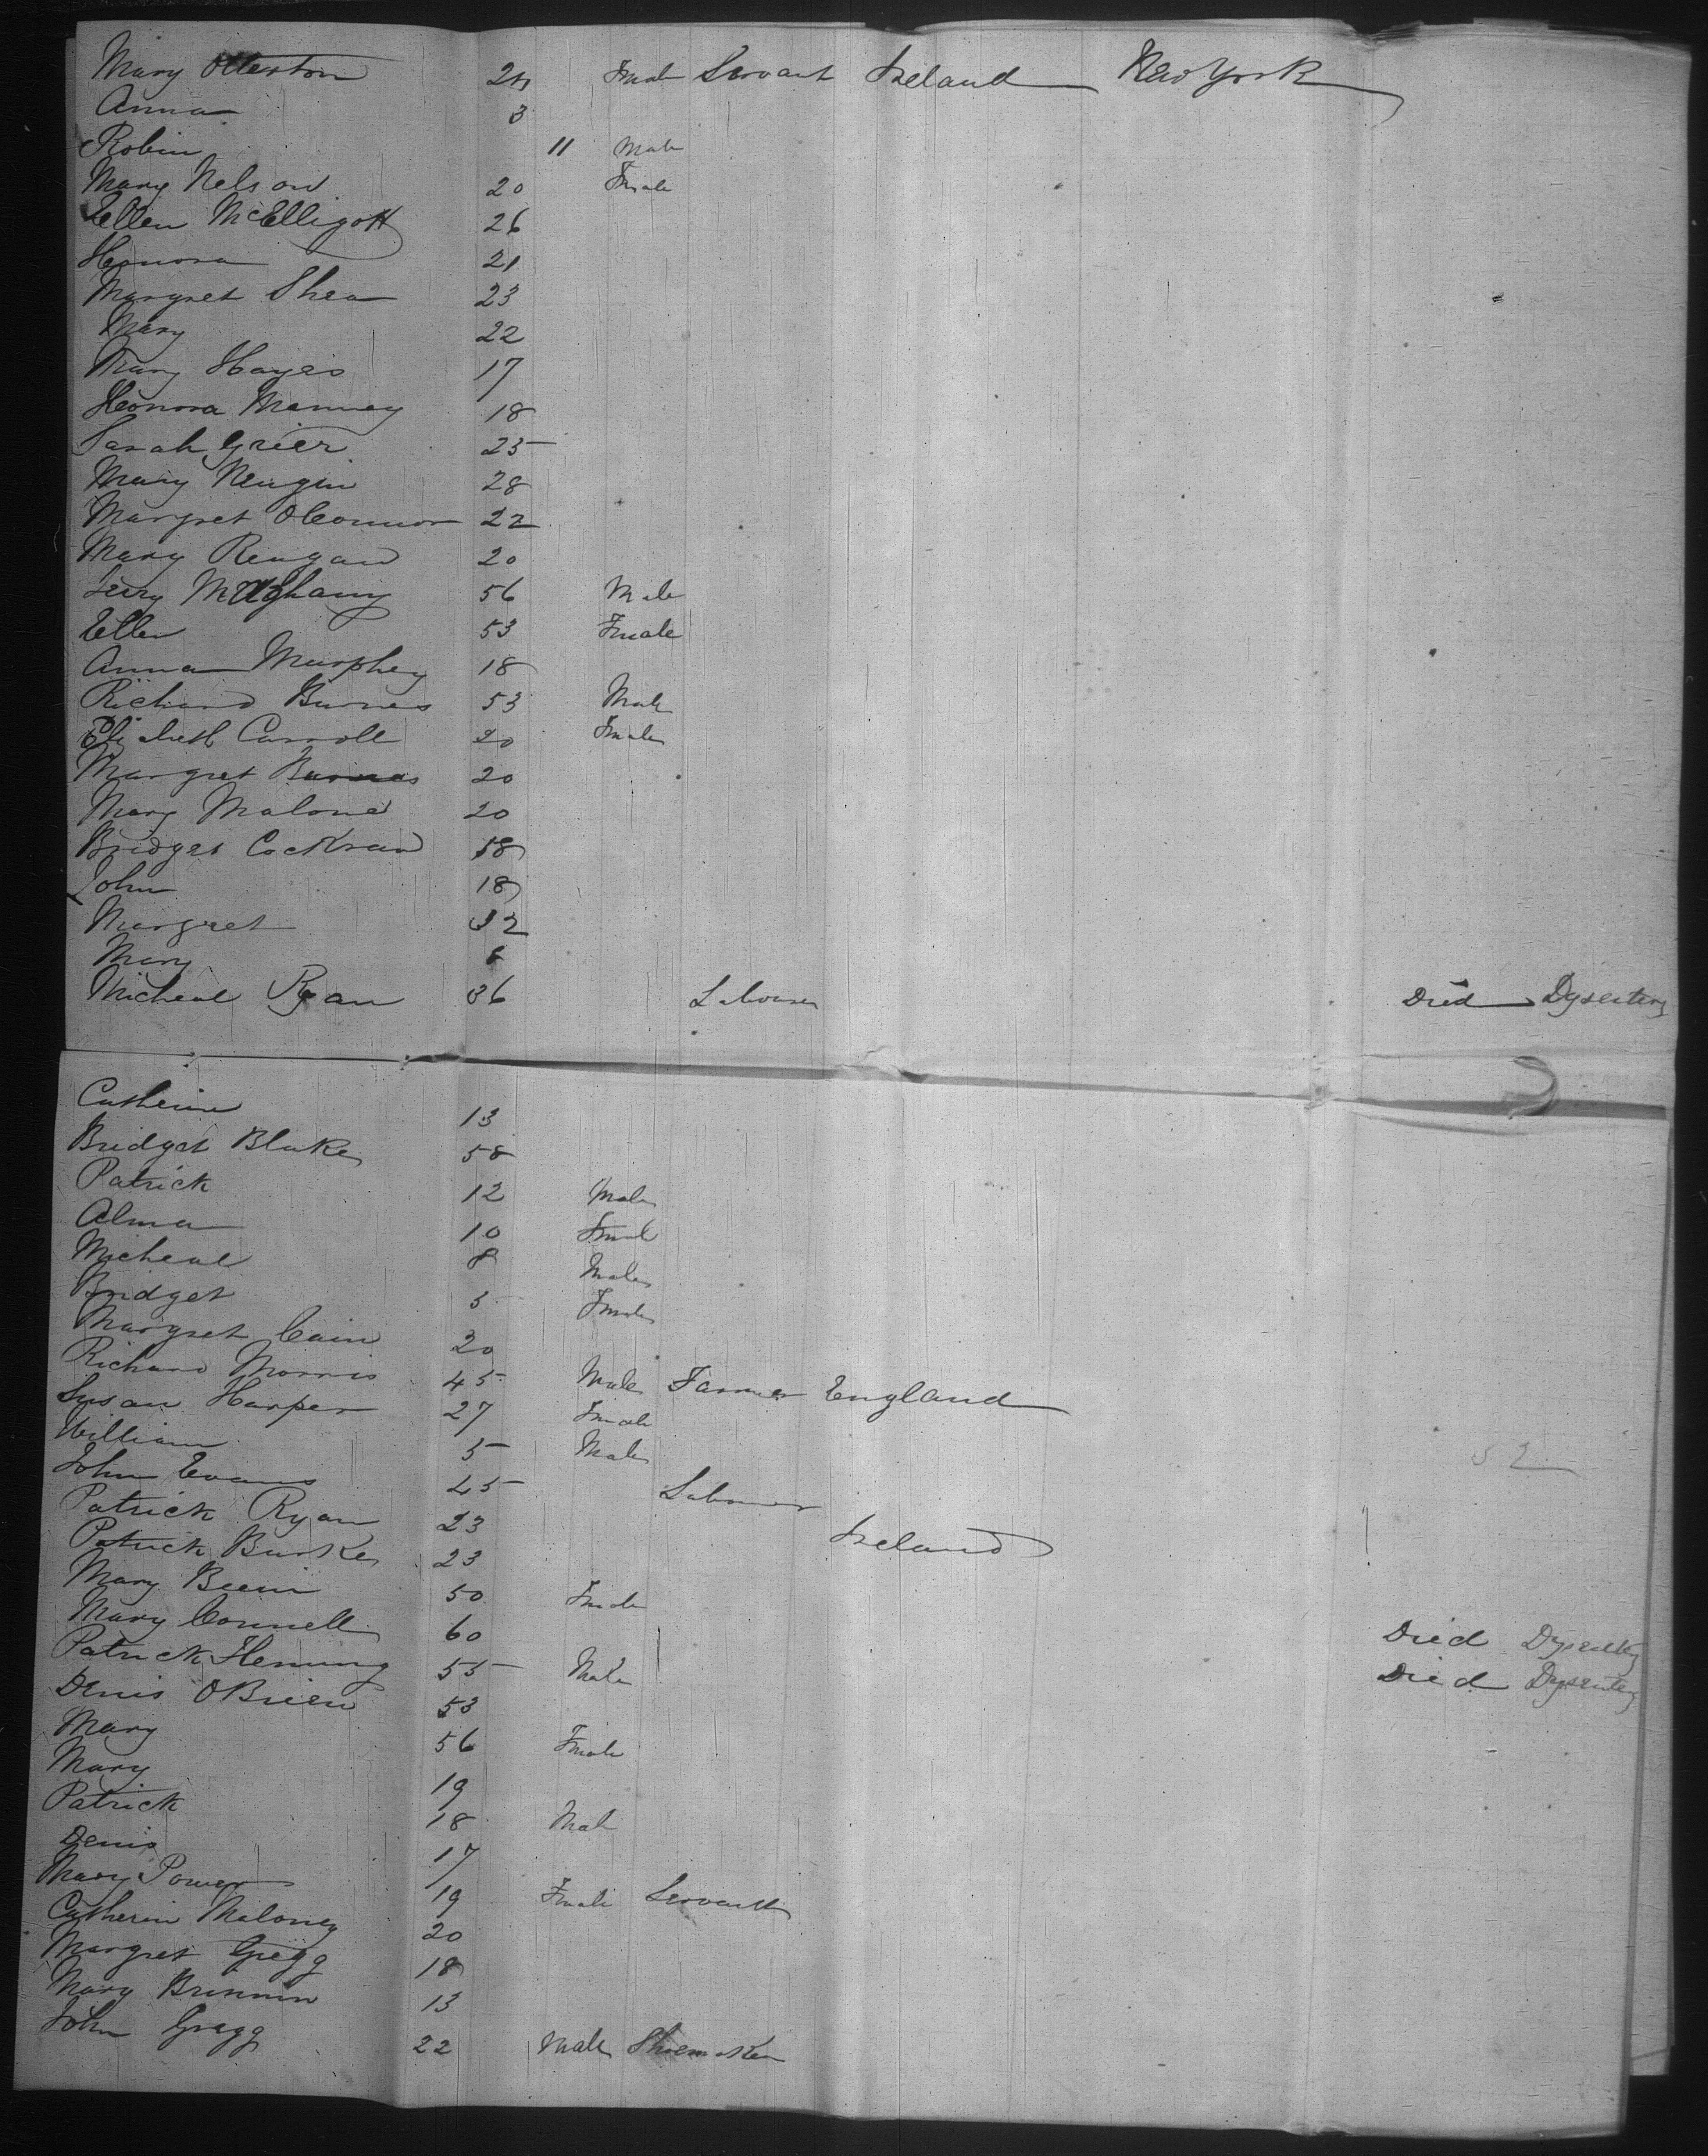 Mary Otterston 24 Femal Servant Ireland New York
Anna 3
Robin 11 Male
Mary Nelson 20 Female
Ellen McElligott 26
Honora 21
Margret Shea 23
Mary 22
Mary Hayes 17
Honora Manney 18
Sarah Grier 25
Mary Neugin 28
Margret OConnor 22
Mary Reagan 20
Jerry 56 Male
Ellen 53 Female
Anna Murphey 18
Richard Burnes 53 Male
Elizabeth Carroll 20 Female
Margret Burnes 20
Mary Malone 20
Bridget Cockran 58
John 18
Margret 32
Mary 8
Micheal Ryan 36 Labourer Died Dysentery
Catherine 13
Bridget Blake 58
Patrick 12 Male
Alma 10 Femal
Micheal 8 Male
Bridget 5 Female
Margret Cain 20
Richard Morris 45 Male Farmer England
Susan Harper 27 Female
William 5 Male
52
John Evans 25 Labourer
Patrick Ryan 23 Ireland
Patrick Burke 23
Mary Beein 50 Female
Mary Connell 60 Died Dysentery
Patrick Fleming 55 Male Died Dysentery
Denis OBrien 53
Mary 56 Female
Mary 19
Patrick 18 Male
Denis 17
Mary Power 19 Female Servant
Catherin Maloney 20
Margret Gregg 18
Mary Brennin 13
John Gregg 22 Male Shoemaker